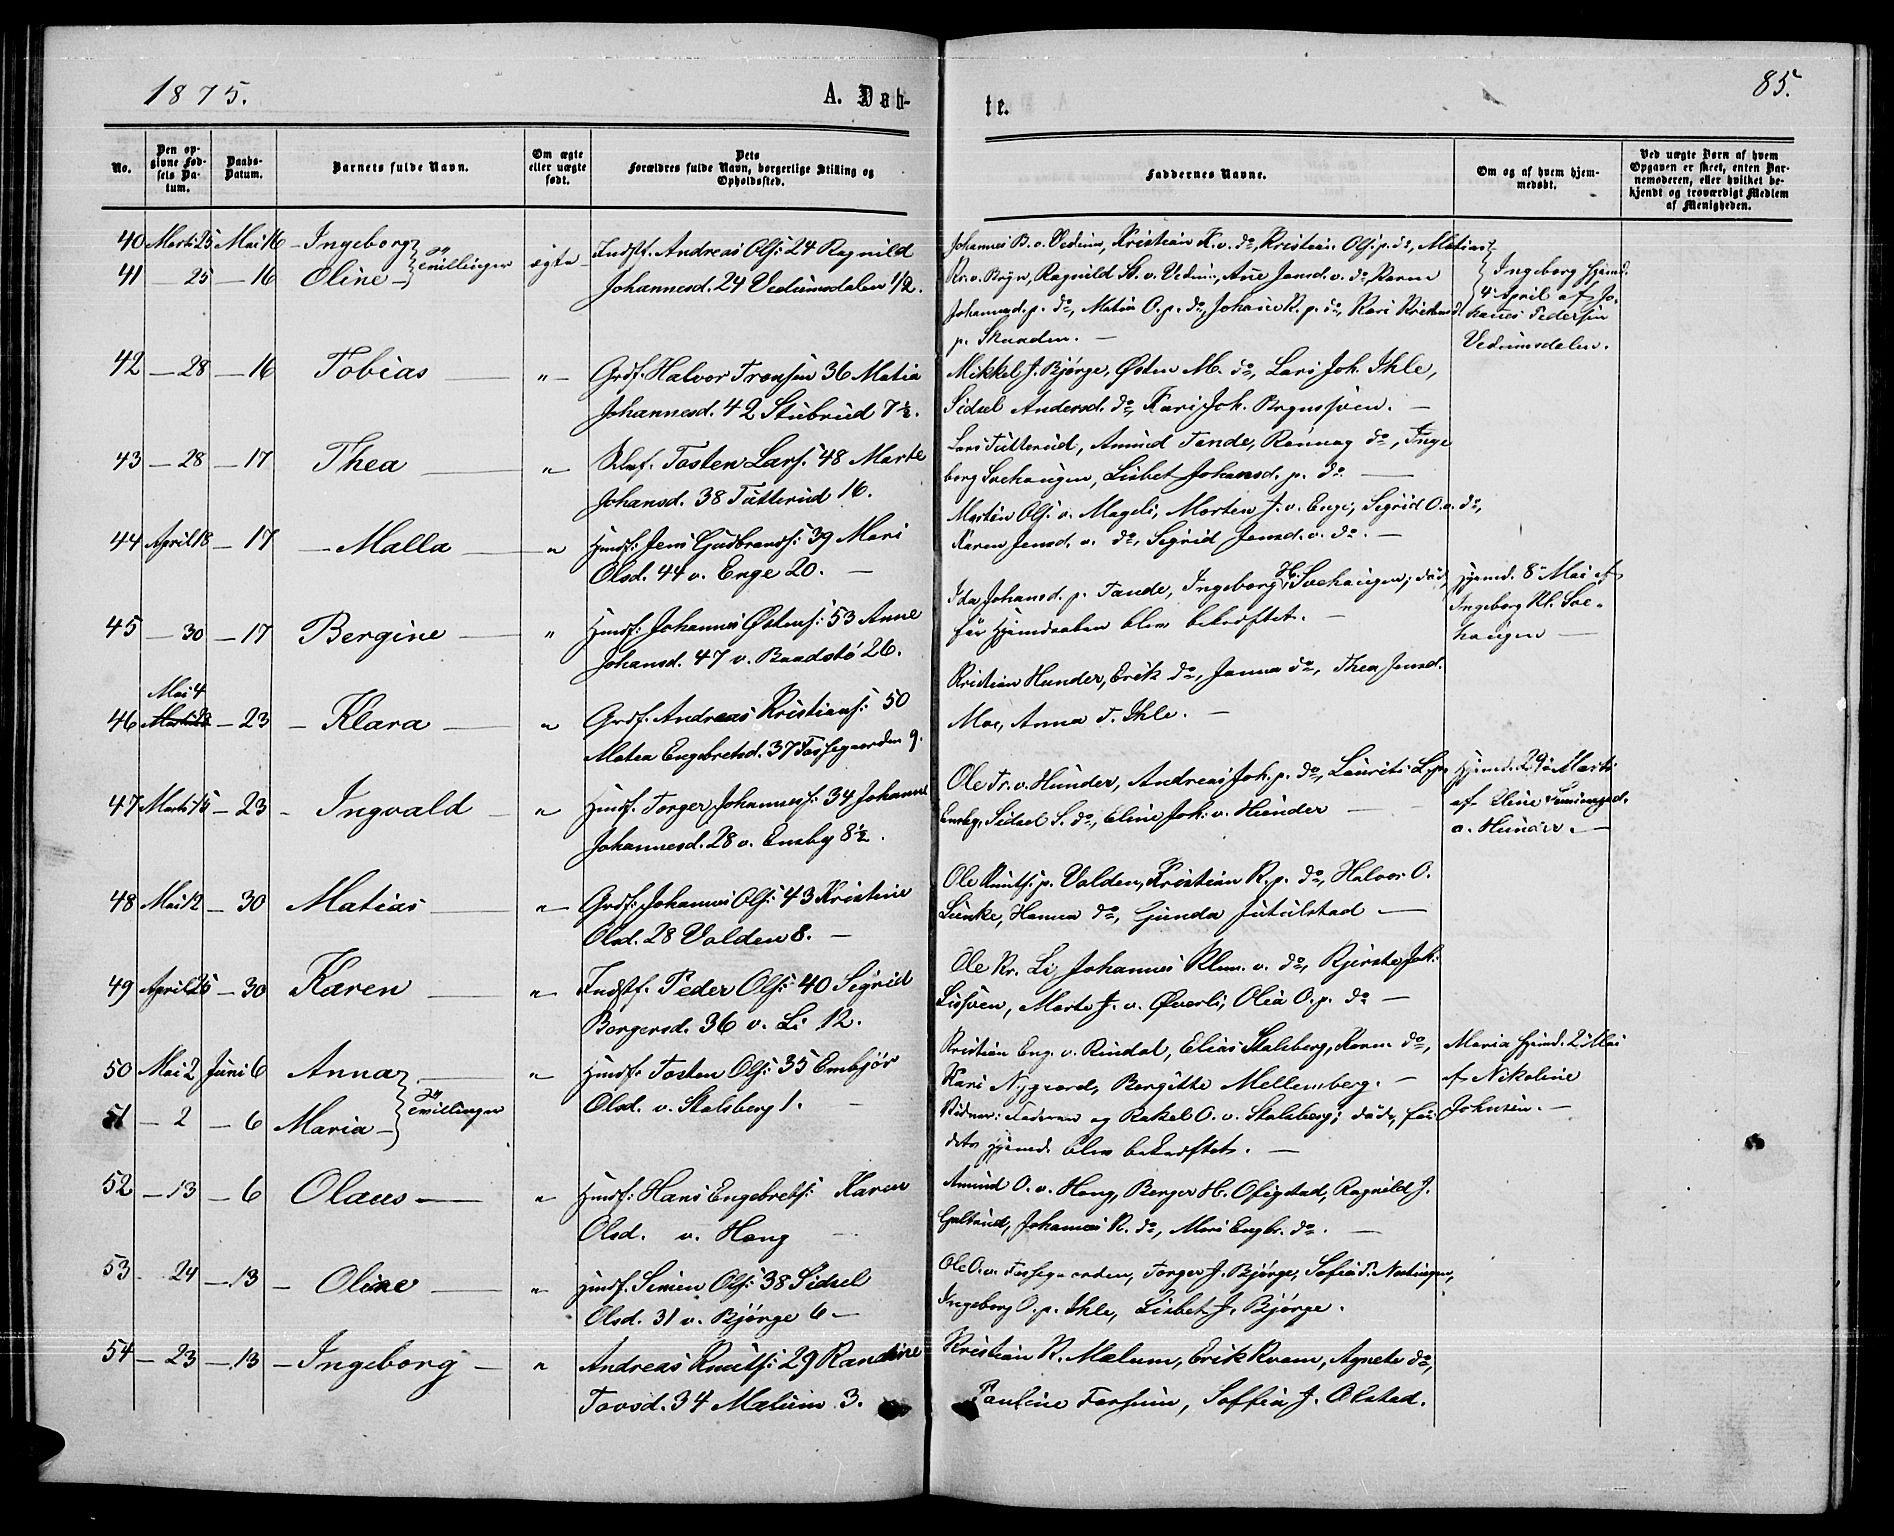 1875.
A. Døb-
te.
85.
No.
Den op-
givne Fød-
sels Da-
tum.
Daabs-
Datum.
Barnets fulde Navn.
Om ægte
eller uægte
født.
Dets
Forældres fulde Navn, borgerlige Stilling og
Opholdssted.
Faddernes Navne.
Om og af hvem hjem-
medøbt.
Ved uægte Børn af hvem
Opgaven er skeet, enten Bar-
nemoderen, eller hvilket be-
kjendt og troværdigt Medlem
af Menigheden.
40 Marts 25 Mai 16 Ingeborg
41 — 25 — 16 Oline — Tvillinger ægte
Indst. Andreas Ols: 24 Ragnild
Johannesd. 24 Vedumsdalen 1/2.
Johannes B. v. Vedum, Kristian K. v. do, Kristian Ols: p. do, Matias
Kr. v. Bryn, Ragnild St. v. Vedum, Ane Jansd. v. do, Karen
Johannesd. p. do, Matia O. p. do, Johan K. p. do, Kari
p. Skaaden. —
Ingeborg hjemd.
4 April af Jo-
hannes Pedersen
Vedumsdalen.
42 — 28 — 16 Tobias — " —
Grdf. Halvor Tronsen 36 Matia
Johannesd. 42 Stubrud 7 1/2.
Mikkel J. Bjørge, Østen M. do, Lars Joh. Ihle,
Sidsel Andersd. do, Kari Joh. —
43 — 28 — 17 Thea — "
Tosten Lars. 48 Marte
Johansd. 38 Tutterud 16.
Lars Tutterud, Amund Tande, Rønnaug do, Inge
borg Svehaugen, Lisbet Johansd. p. do —
44 April 18 — 17 — Malla — "
Husf. Jens Gudbrands: 39 Mari
Olsd. 44 v. Enge 20. —
Martin Ols: v. Mageli, Morten J. v. Enge, Sigrid O. v. do,
Karen Jensd. v. do, Sigrid Jensd. v. do. —
45 — 30 — 17 Bergine — "
Husf. Johannes Østens: 53 Anne
Johansd. 47 v. Baadstø 26.
Ida Johansd. p. Tande, Ingeborg H. Svehaugen; død
før Hjemdaaben blev bekræftet. —
Hjemd. 8 Mai af
Ingeborg Kl. Sve-
haugen —
46 Mai 4 — 23 — Klara — "
Grdf. Andreas Kristians: 50
Matea Engebretsd. 37 Fossegaarden 9.
Kristian Hunder, Erik do, Janna do, Thea Jensd.
Moe, Anna T. Ihle. —
47 Marts 15 — 23 — Ingvald — "
Husf. Torger Johanness: 34 Johanne
Johannesd. 28 v. Enaby 8 1/2.
Ole Tr. v. Hunder, Andreas Joh. p. do, Laurits L. p.
Enaby, Sidsel S. do, Eline Joh. v. Hunder —
Hjemd. 29 Marts
af Eline
v. Hunder. —
48 Mai 12 — 30 Matias — "
Grdf. Johannes Ols: 43 Kristine
Olsd. 28 Volden 8. —
Ole Knuts: p. Volden, Kristian K. p. do, Halvor O.
Lunke, Hanna do, Gunda Jutulstad —
49 April 25 — 30 Karen — "
Indst. Peder Ols: 40 Sigrid
Borgersd. 36 v. Li 12.
Ole Kr. Li, Johannes Klem. v. do, Kjersti Joh.
Lisveen, Marte J. v. Øverli, Olea O. p. do —
50 Mai 2 Juni 6 Anna — "
51 — 2 — 6 Maria — Tvillinger
Husf. Tosten Ols: 35 Embjør
Olsd. v. Stalsberg 1. —
Kristian Eng. v. Rindal, Elias Stalsberg, Karen do,
Kari Nygaard, Bergitte Mellemberg. —
Vidner: Faderen og Rakel O. v. Stalsberg; død, før
dets Hjemd. blev bekræftet. —
Maria hjemd. 2 Mai
af Nikoline
Johnsen. —
52 — 13 — 6 Olaus — "
Husf. Hans Engebrets: Karen
Olsd. v. Haug —
Amund O. v. Haug, Berger H. Ofigstad, Ragnild J.
Gulbrud, Johannes K. do, Mari Engbr. do. —
53 24 — 13 — Oline — "
Husf. Simen Ols: 38 Sidsel
Olsd. 31 v. Bjørge 6 —
Ole O. v. Fossegaarden, Torger J. Bjørge, Sofie P.
Ingeborg O. p. Ihle, Lisbet J. Bjørge.
54 — 23 — 13 — Ingeborg — "
Andreas Knuts: 29 Randine
Tovsd. 34 Mælum 3.
Kristian K. Mælum, Erik Kvam, Agnete do,
Pauline Forsum, Soffia J. Olstad.